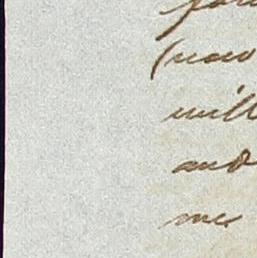 (now
will
and
me